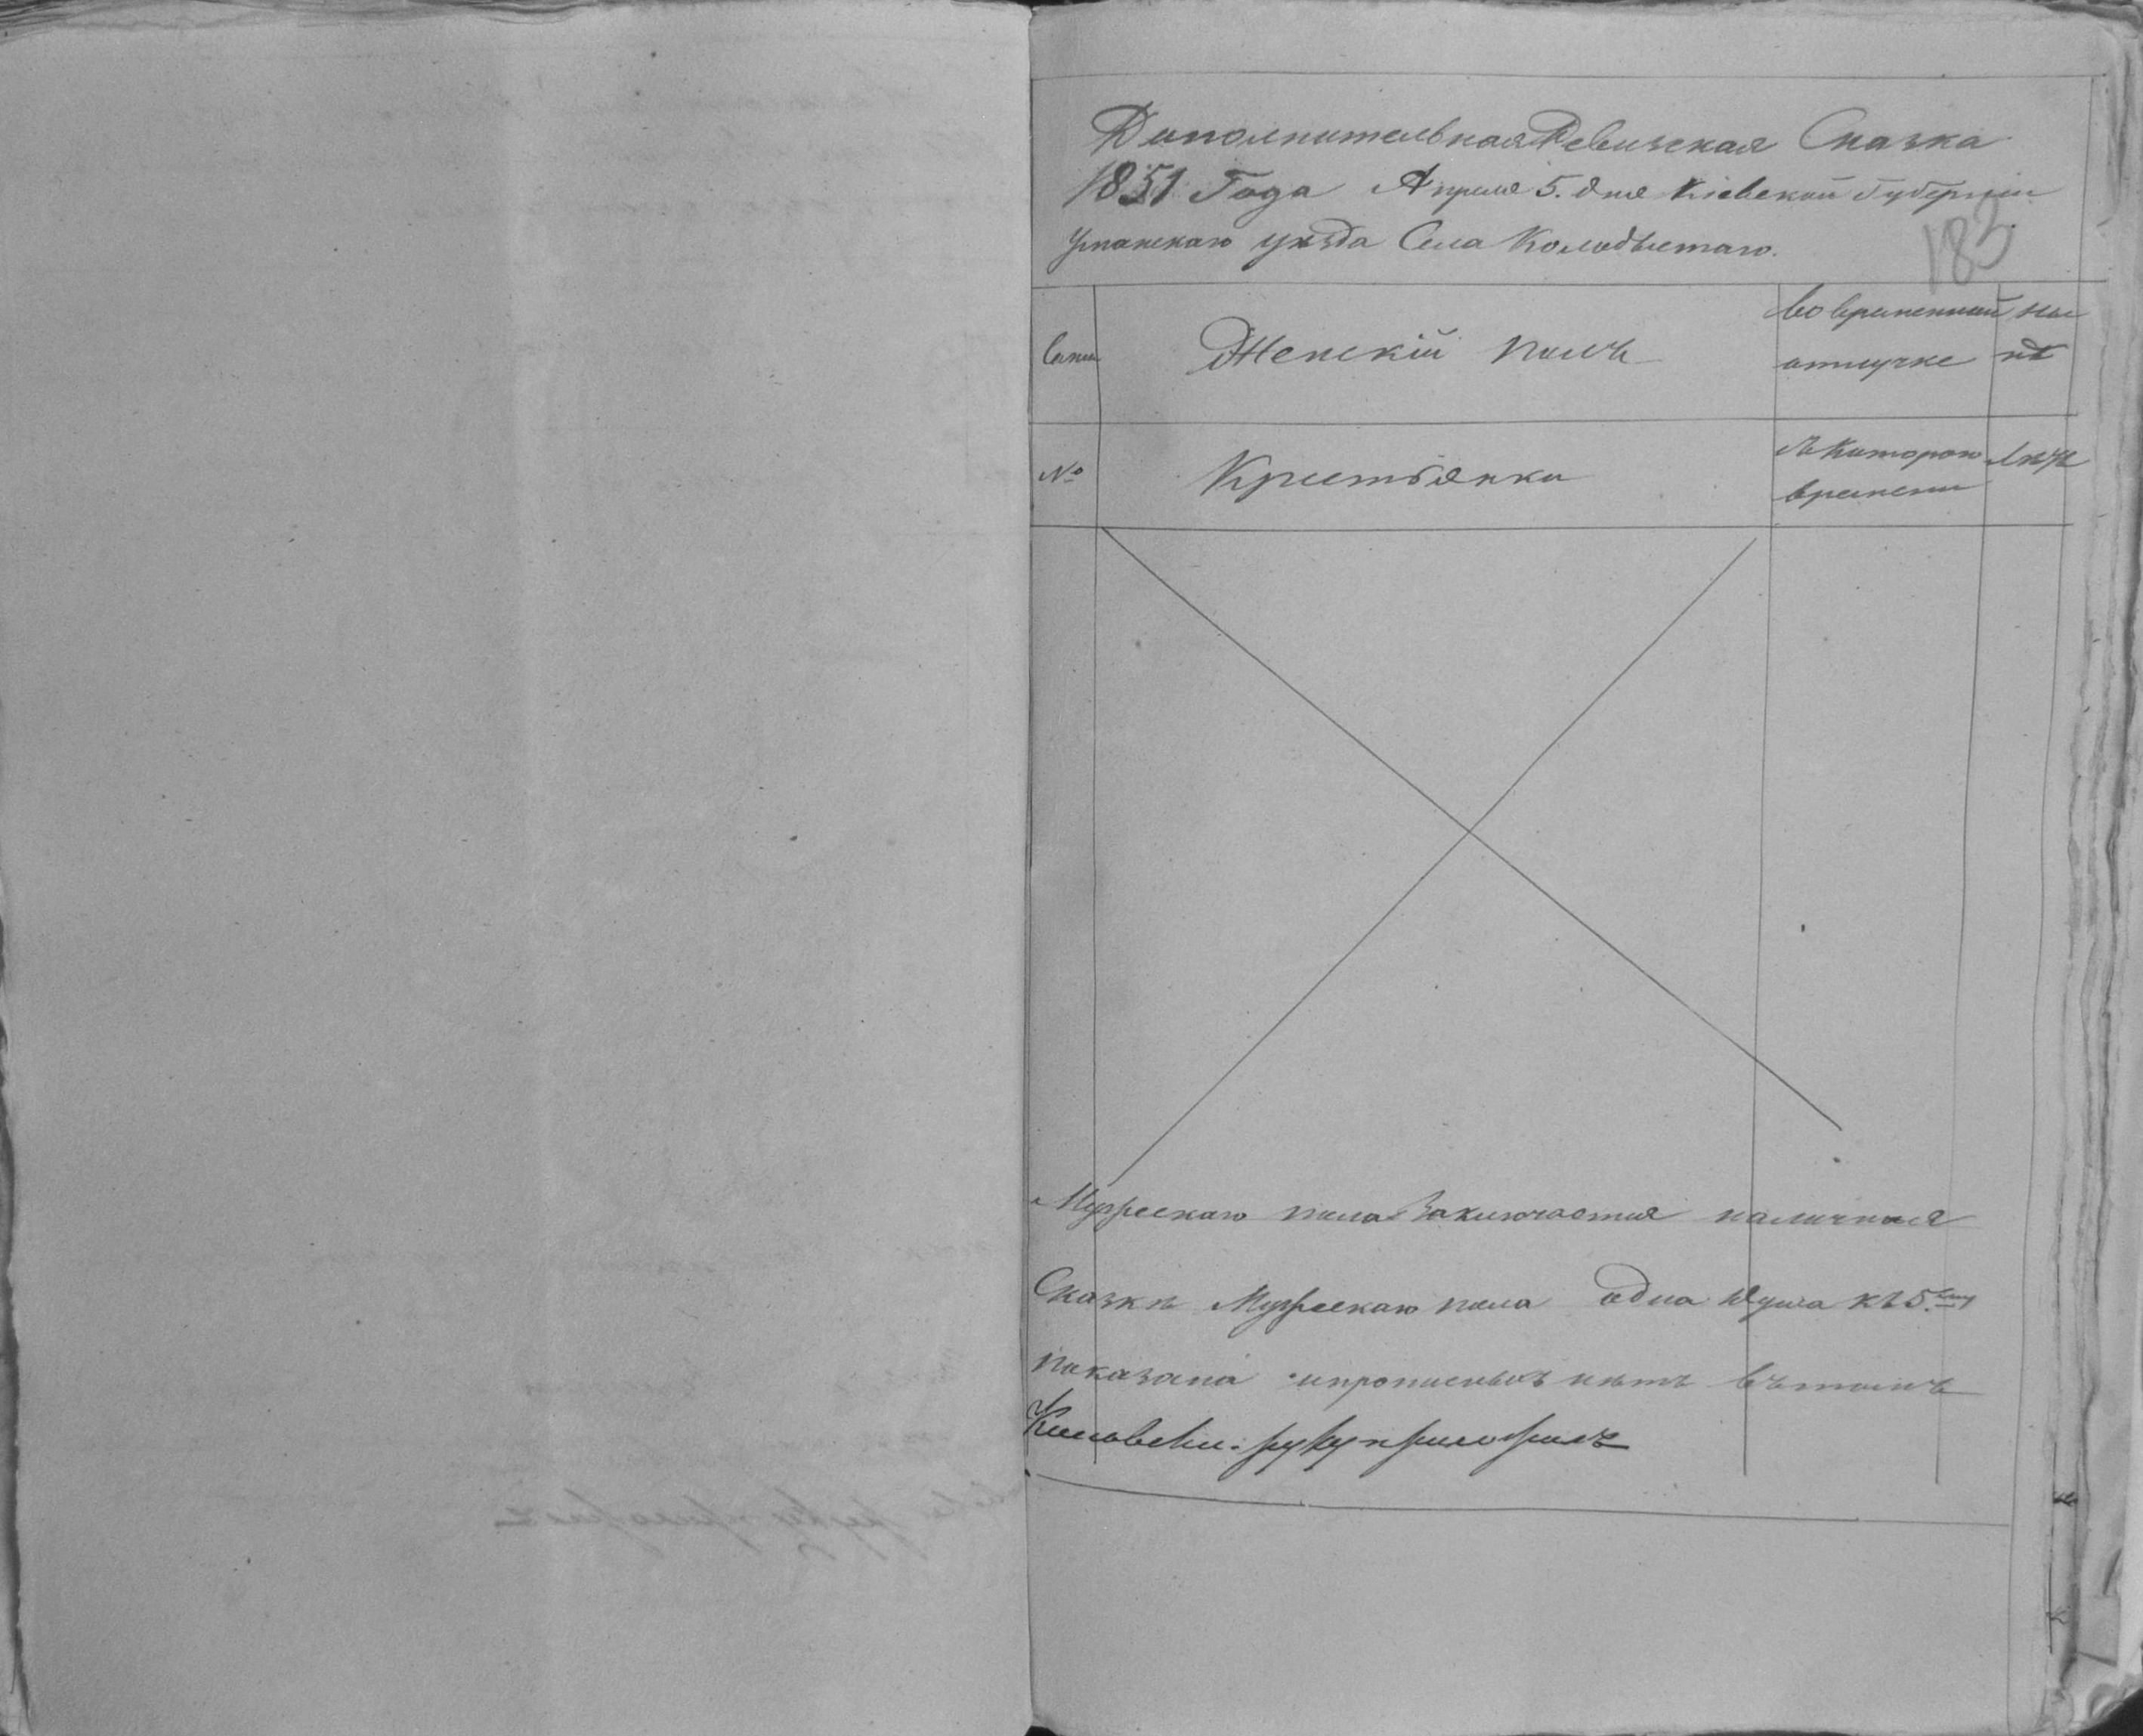 Дополнительная Ревизская Сказка
1851 Года Апреля 5. дня Кіевской Губерніи
183
Уманскаго уѣзда Села Колодыстаго.
Семьи
Женскій полъ
Во временной
отлучке
ны
нѣ
№
Крестьянки
съ Котораго
времени
Лѣтъ
Мужескаго пола Заключается наличная
Сказкѣ Мужескаго пола одна душа къ 5.
показана ипрописныхъ нѣтъ вътомъ
руку приложилъ